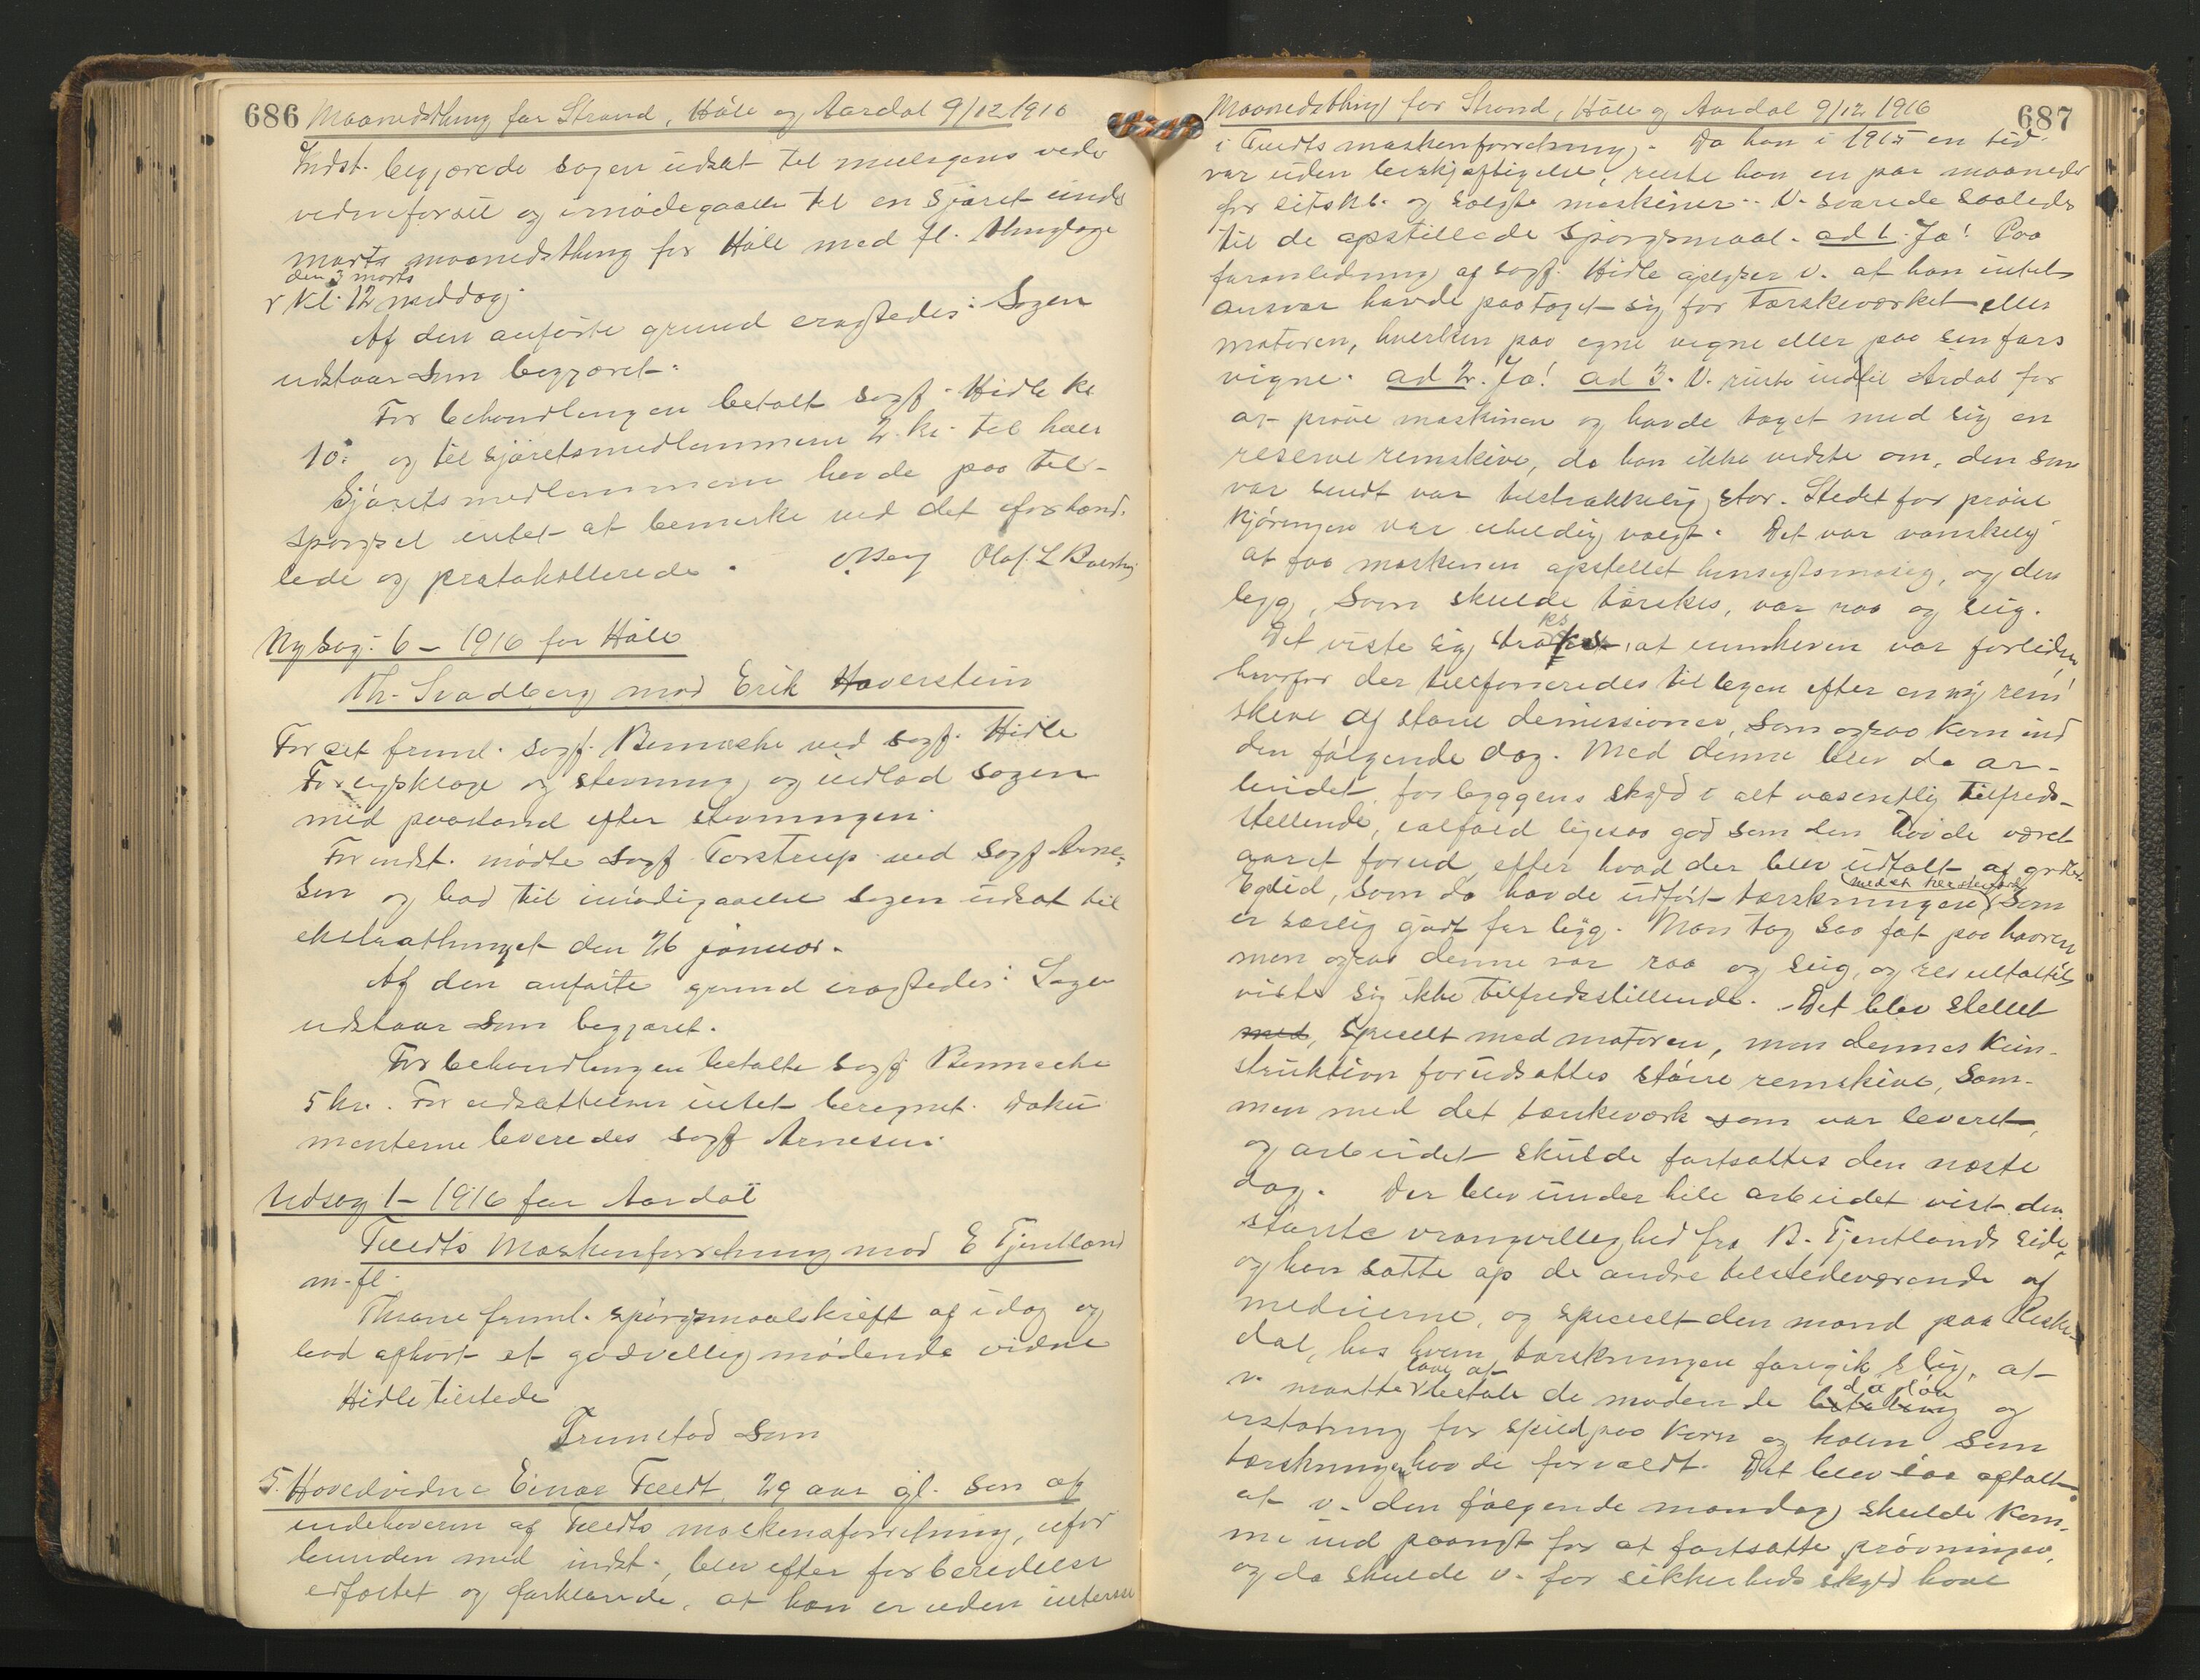 686 Maanedsthing for Strand, Høle og Aardal 9/12 1916
Indst. begjærede sagen udsat til muligens vider
vidneførsel og imødegaaelse til en sjøret under
marts maanedsthing for Høle med fl. thinglage
den 3 marts
kl. 12 middag.
Af den anførte grund eragtedes: Sagen
udstaar som begjæret.
For behandlingen betalt sagf. Hidle kr.
10. og til sjøretsmedlemmerne 2 kr. til hver
Sjørets medlemmerne havde paa til-
spørgsel intet at bemerke ved det forhand-
lede og protokollerede. Olaf. L
Ny sag: 6 - 1916 for Høle
Th. Svadberg mod Erik Haverstein
For cit freml. sagf. Benneche ved sagf. Hidle
Forligsklage og stevning og indlod sagen
med paastand efter stevningen.
For indst. mødte sagf Torstrup ved sagf Arne-
sen og bad til imødegaaelse sagen udsat til
ekstrathinget den 26 januar.
Af den anførte grund eragtedes: Sagen
udstaar som begjæret.
For behandlingen betalte sagf Benneche
5 kr. For udsættelsen intet beregnet. Doku
menterne leveredes sagf Arnesen.
Udsag 1 - 1916 for Aardal
Tuedts Maskinforretning mod E Tjentland
m. fl.
Thsane freml. spørgsmaalskrift af idag og
bad afhørt et godvillig mødende vidne
Hidle tilstede
Fremstod som
5. Hovedvidne Einar Tuedt, 29 aar gl. søn af
indehaveren af Tuedts maskinforretning, ufor
bunden med indst., blev efter forberedelse
edfæstet og forklarede, at han er uden interesse
Maanedsthing for Strand, Høle og Aardal 9/12 1916 687
i Tuedts maskinforretning. Da han i 1915 en tid
var uden beskjæftigelse, reiste han en par maaneder
for citskt. og solgte maskiner. V. svarede saaledes
til de opstillede spørgsmaal. ad 1. Ja! Paa
foranledning af sagf. Hidle oplyser v. at han intet
ansvar havde paataget sig for tærskeværket eller
motoren, hverken paa egne vegne eller paa sin fars
vegne. ad 2. Ja! ad 3. V. reiste ind til Årdal for
at prøve maskinen og havde taget med sig en
reserve remskive, da han ikke vidste om, den som
var sendt var tilstrækkelig stor. Stedet for prøve
kjøringen var uheldig valgt. Det var vanskelig
at faa maskinen opstillet hensigtsmæsig, og den
bygg, som skulde tærskes, var raa og seig.
Det viste sig straks, at remskiven var forliden,
hvorfor der telefoneredes til byen efter en ny rem
skive af større dimensioner, som ogsaa kom ind
den følgende dag. Med denne blev da ar-
beidet, for byggens skyld i alt væsentlig tilfreds-
stillende, ialfald ligesaa god som den havde været
aaret forud efter hvad der blev udtalt af
som da havde udført tærskningen som
er særlig godt for bygg. Man tog saa fat paa havren
men ogsaa denne var raa og seig, og resultatet
viste sig ikke tilfredsstillende. Det blev stellet
med, specielt med motoren, men dennes kon-
struktion forudsattes større remskive, sam-
men med det tærskeværk som var leveret,
og arbeidet skulde fortsættes den næste
dag. Der blev under hele arbeidet vist den
største vrangvillighed fra B. Tjentlands side,
og han satte op de andre tilstedeværende af
medeierne, og specielt den mand paa Riske-
dal, hos hvem tærskningen foregik slig, at
v. maatte love at betale de mødende betaling dagløn og
erstatning for spild paa korn og halm som
tærskningen havde forvoldt. Det blev saa aftalt
at v. den følgende mandag skulde kom-
me ind paanyt for at fortsætte prøvningen,
og da skulde v. for sikkerheds skyld have